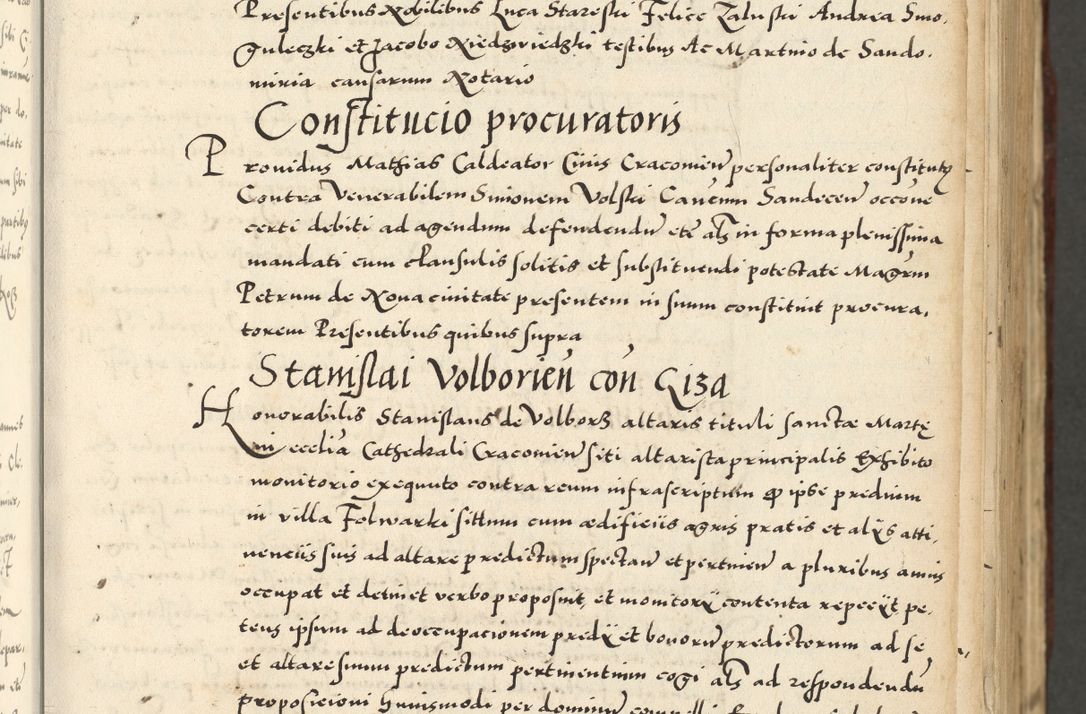 Presentibus Nobilibus Luca Stareski Felice Zaluski Andrea Smo,
guleczki et Jacobo Niedzwiedzki testibus Ac Martino de Sando,
miria causarum Notario
Constitucio procuratoris
Prouidus Mathias Caldeator Ciuis Cracouien personaliter constitutus
Contra Venerabilem Simonem Volski Cancum Sandecen occone
certi debiti ad agendum defendendum etc als in forma plenissima
mandati cum clausulis solitis et substituendi potestate Magrum
Petrum de Noua ciuitate presentem in suum constituit procura,
torem Presentibus quibus supra
Stanislai Volborien con Giza
Honorabilis Stanislaus de Volborz altaris tituli sanctæ Martę
in ecclia Cathedrali Cracouien siti altarista principalis Exhibito
monitorio exequuto contra reum infrascriptum quod ipse predium
in villa Folwarki situm cum ædificiis agris pratis et alijs atti,
nenciis suis ad altare predictum spectan et pertinen a pluribus annis
occupat et detinet verbo proposuit, et monitorij contenta repeciit pe,
tens ipsum ad deoccupacionem predij et bonorum predictorum ad se
et altare suum predictum pertinentium cogi als ad respondendum
proposicioni huiusmodi per dominum compelli